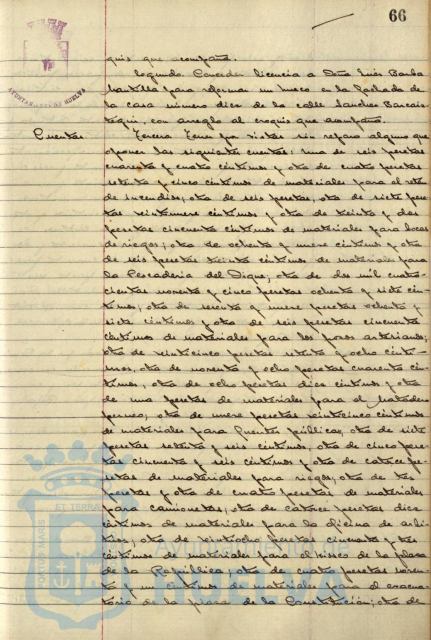 66
AYUNTAMIENTO HUELVA
quis que acompaña.
Segundo. Conceder licencia a Doña Inés Barba
Mantilla para reformar un hueco en la fachada de
la casa número diez de la calle Sánchez Barcaiz-
tegui, con arreglo al croquis que acompaña.
Cuentas.
Tercera. Tener por vistas sin reparo alguno que
oponer las siguientes cuentas: una de seis pesetas
cuarenta y cuatro céntimos y otra de cuatro pesetas
setenta y cinco céntimos de materiales para el retén
de incendios; otra de seis pesetas, otra de siete pese-
tas veintinueve céntimos y otra de treinta y dos
pesetas cincuenta céntimos de materiales para bocas
de riegos; otra de ochenta y nueve céntimos y otra
de seis pesetas treinta céntimos de materiales para
la Pescadería del Dique; otra de dos mil cuatro-
cientas noventa y cinco pesetas ochenta y siete cén-
timos; otra de sesenta y nueve pesetas ochenta y
siete céntimos y otra de seis pesetas cincuenta
céntimos de materiales para los pozos artesianos;
otra de veinticinco pesetas setenta y ocho cénti-
mos, otra de noventa y ocho pesetas cuarenta cén-
timos, otra de ocho pesetas diez céntimos y otra
de una pesetas de materiales para el matadero
otra de nueve pesetas veinticinco céntimos
de materiales para fuentes públicas, otra de siete
pesetas setenta y seis céntimos, otra de cinco pese-
tas cincuenta y seis céntimos y otra de catorce pe-
setas de materiales para riegos; otra de tres
pesetas y otra de cuatro pesetas de materiales
para camionetas; otra de catorce pesetas diez
céntimos de materiales para la oficina de arbi-
trios; otra de veintiocho pesetas cincuenta y tres
céntimos de materiales para el kiosco de la plaza
de la República; otra de cuatro pesetas noven-
ta y un céntimos de materiales para el evacua-
torio de la plaza de la Constitución; otra de
PORTUS MARIS
ET TERRAE
HUELVA